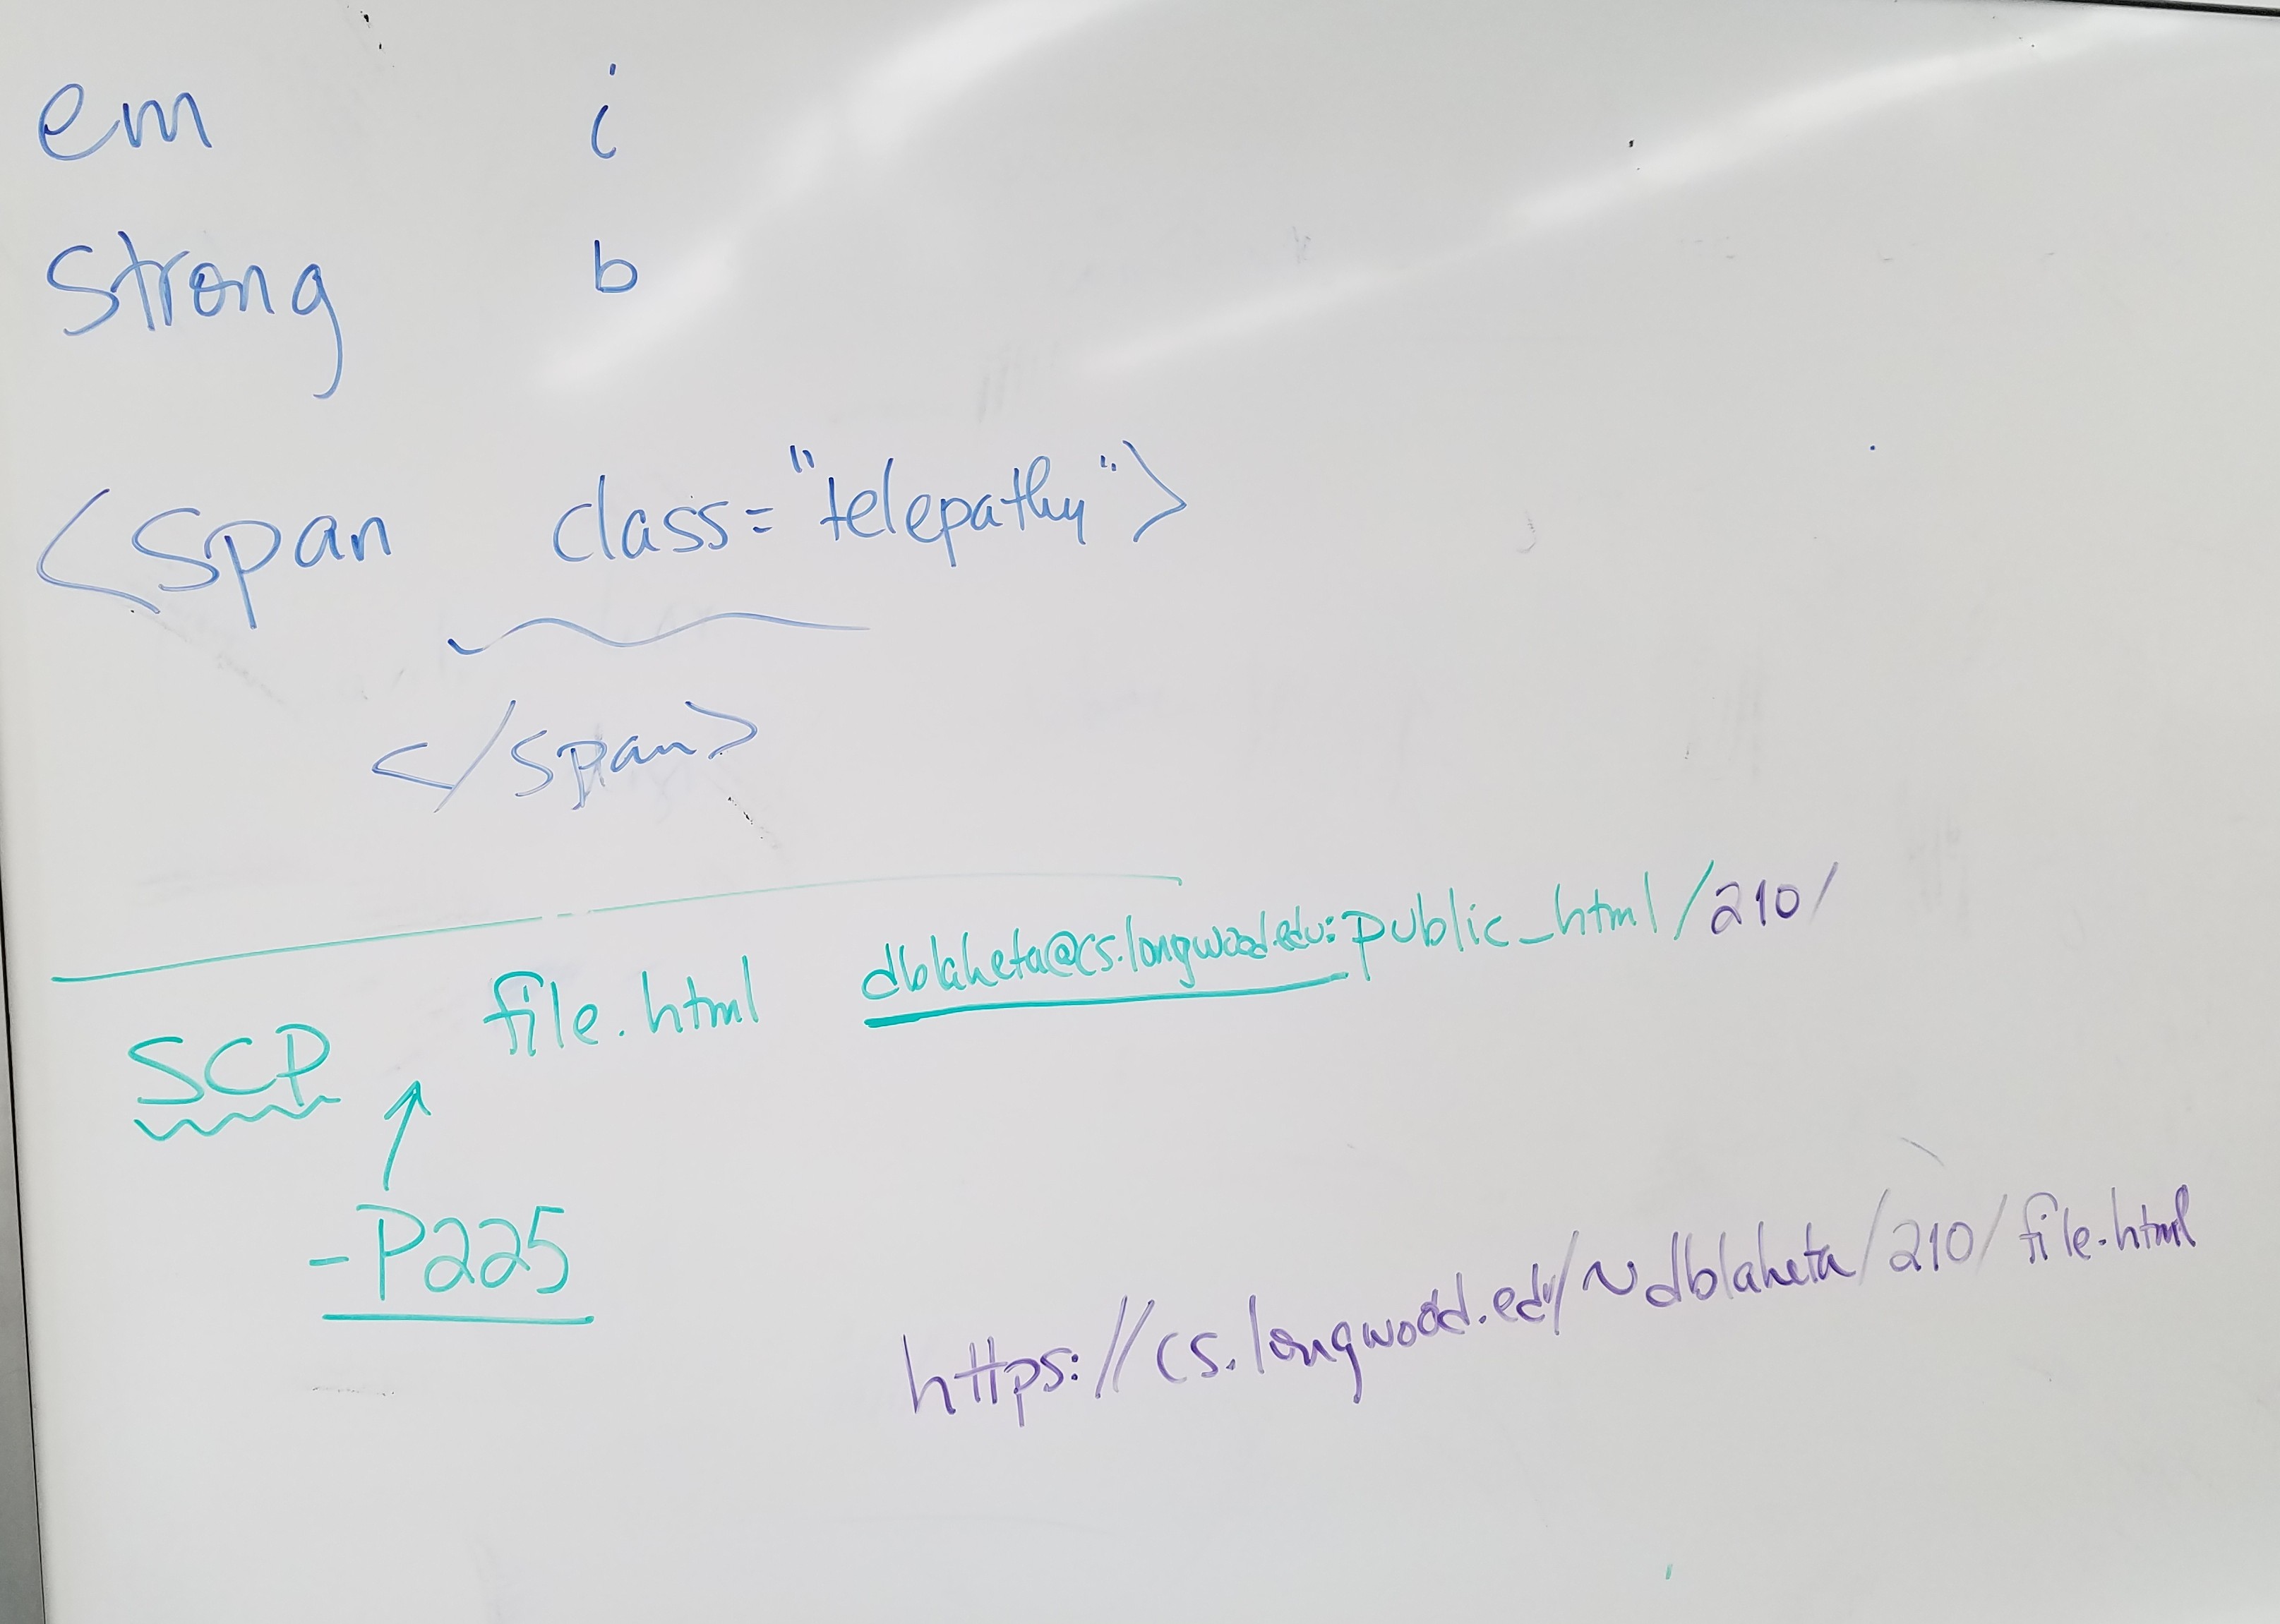 em i
strong b
<span class="telepathy">
</span>
scp file.html dblaheta@cs.longwood.edu:public_html/210/
-P225
https://cs.longwood.edu/~dblaheta/210/file.html